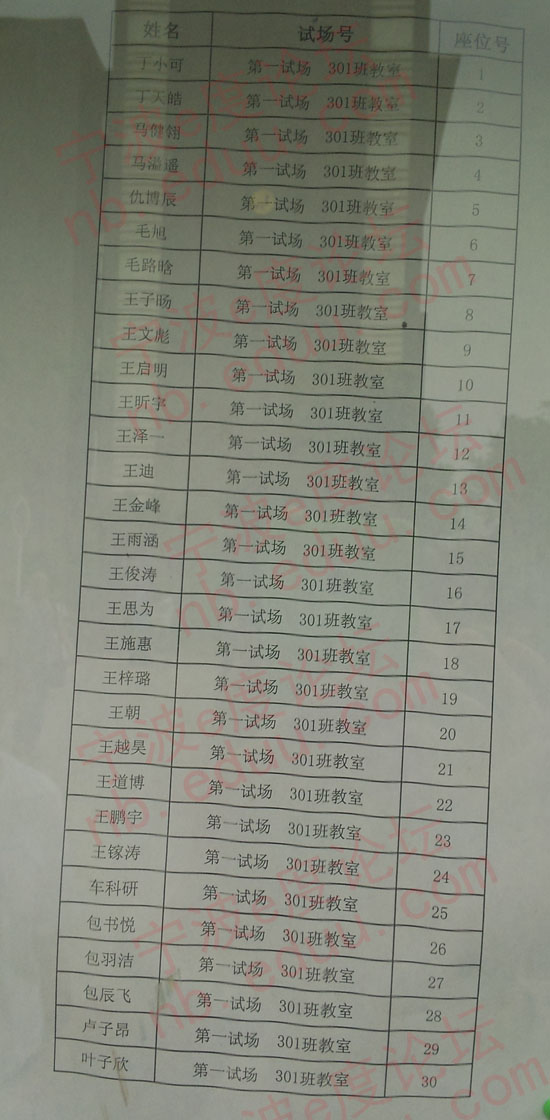 姓名 试场号 座位号
丁小可 第一试场 301班教室 1
丁天皓 第一试场 301班教室 2
马健翎 第一试场 301班教室 3
马溢遥 第一试场 301班教室 4
仇博辰 第一试场 301班教室 5
毛旭 第一试场 301班教室 6
毛路晗 第一试场 301班教室 7
王子旸 第一试场 301班教室 8
王文彪 第一试场 301班教室 9
王启明 第一试场 301班教室 10
王昕宇 第一试场 301班教室 11
王泽一 第一试场 301班教室 12
王迪 第一试场 301班教室 13
王金峰 第一试场 301班教室 14
王雨涵 第一试场 301班教室 15
王俊涛 第一试场 301班教室 16
王思为 第一试场 301班教室 17
王施惠 第一试场 301班教室 18
王梓璐 第一试场 301班教室 19
王朝 第一试场 301班教室 20
王越昊 第一试场 301班教室 21
王道博 第一试场 301班教室 22
王鹏宇 第一试场 301班教室 23
王镓涛 第一试场 301班教室 24
车科研 第一试场 301班教室 25
包书悦 第一试场 301班教室 26
包羽洁 第一试场 301班教室 27
包辰飞 第一试场 301班教室 28
卢子昂 第一试场 301班教室 29
叶子欣 第一试场 301班教室 30
宁波e度论坛
nb.eduu.com